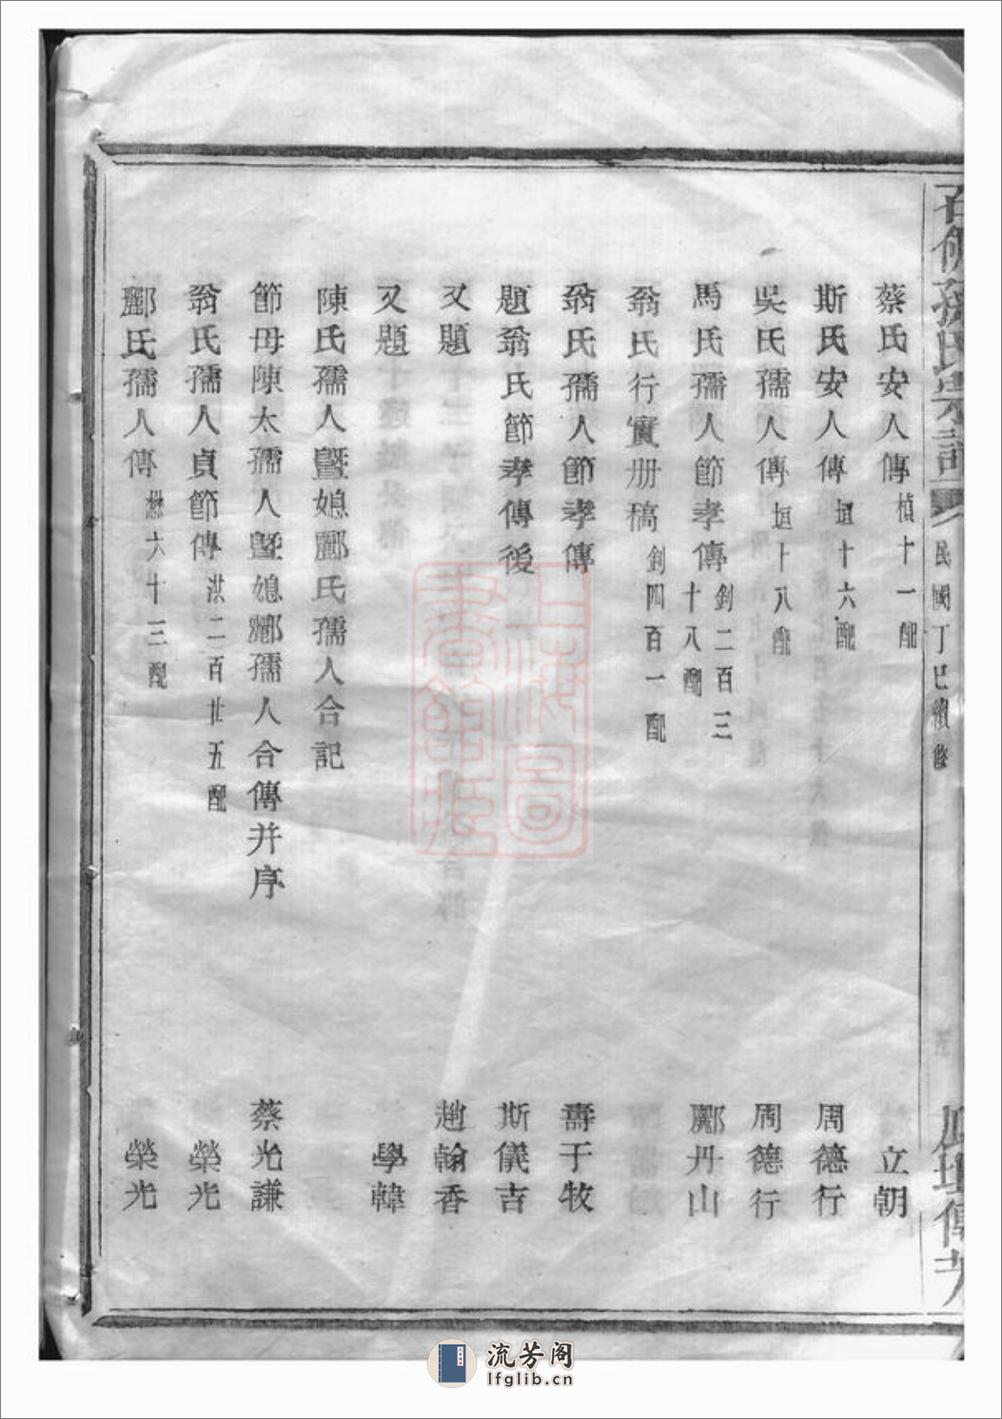 孫氏宗譜 民國丁巳續修
蔡氏安人傳 楨十一配 立朝
斯氏安人傳 垣十六配 周德行
吳氏孺人傳 垣十八配 周德行
馬氏孺人節孝傳 釗二百三十八配 酈丹山
翁氏行實册稿 釗四百一配
翁氏孺人節孝傳 壽于牧
題翁氏節孝傳後 斯儀吉
又題 趙翰香
又題 學韓
陳氏孺人暨媳酈氏孺人合記
節母陳太孺人暨媳酈孺人合傳并序 蔡光謙
翁氏孺人貞節傳 洪二百廿五配 榮光
酈氏孺人傳 懋六十三配 榮光
上海圖書館藏
流芳阁
lfglib.cn